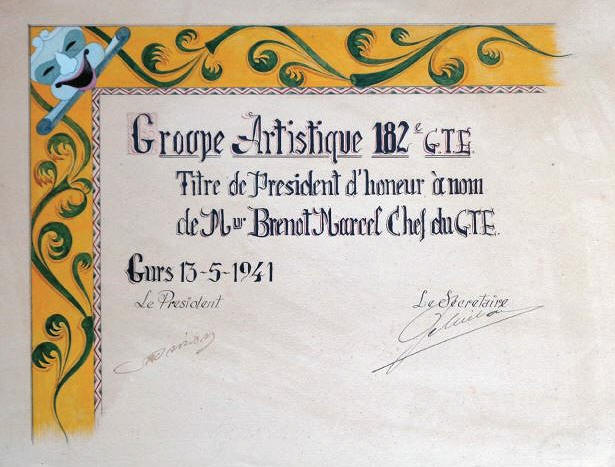 Groupe Artistique 182e G.T.E.
Titre de President d'honeur à nom
de Mur Brenot Marcel Chef du GTE.
Gurs 13-5-1941
Le President
Le Sécretaire